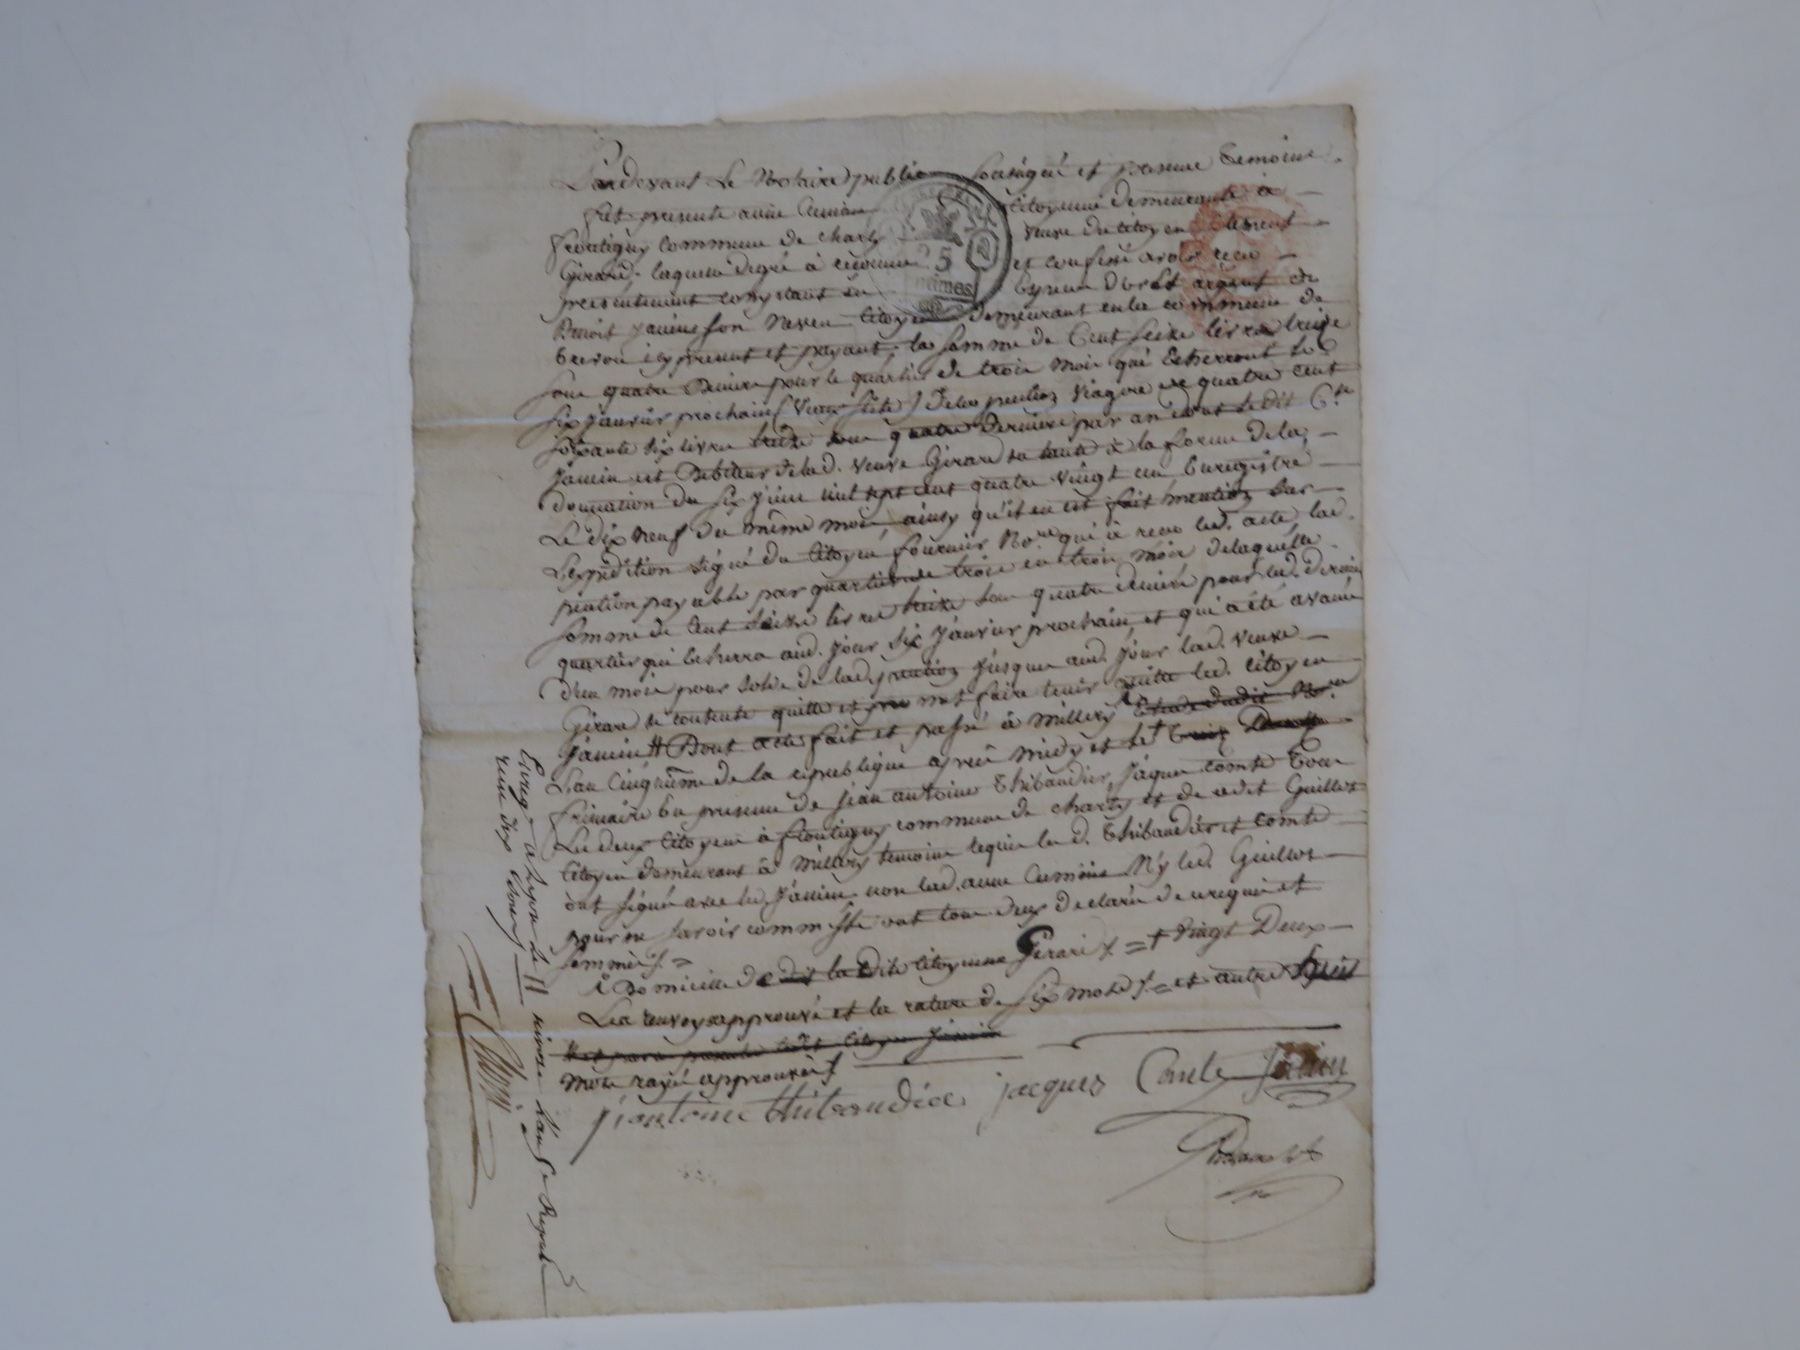 Pardevant Le Notaire public soussigné et presence temoins
fut presente anne Cumian citoyenne demeurante à
flontigny Commune de charly veuve du citoyen Clement
Girard, laquelle degré à reconnue et confessé avoir reçu
presentement comptant en espesses d'or et argent de
Benoit Janin son Neveu Citoyen demeurant en la commune de
icy present et payant, la somme de Cent seize livres treize
sous quatre Deniers pour le quartier de trois mois qui Echerront le
six Janvier prochain (vieux stile) dela pention viagere de quatre Cent
soixante six livres treize sous quatre Deniers par an dont le dit C.en
Janin est Debiteur de lad. veuve Girard sa tante à la forme de la
donnation du six Juin mil sept cent quatre vingt un Enregistré
Le dix neuf du même mois, ainsy qu'il en est fait mention sur
L'expedition signé du Citoyen fournier No.re qui à recu led. acte lad.
pention payable par quartier de trois en trois mois delaquelle
somme de Cent seize livres treize sous quatre deniers pour led. dernier
quartier qui Echerra aud. jour six Janvier prochain et qui a été avancé
d'un mois pour solde de lad. pention Jusques aud. jour lad. veuve
Girard se contente quitte et promet faire tenir quitte led. citoyen
Janin # Dont acte fait et passé à Millery Etude dudit No.re
L'an Cinquième de la republique après midy et le †
frimaire En presence de jean antoine Thibaudier, Jaques Comte Tous
Les deux Citoyens à flontigny commune de charly et de Guillot
Citoyen demeurant à Millery temoins lequels led. Thibaudier et Comte
ont signé avec led. Janin non lad. anne Cumian Ny led. Guillot
pour ne savoir comm ont tous deux declaré de ce requis et
sommés ./. =
à Domicile de la dite Citoyenne Girard X = † vingt Deux
Les renvoys approuvé et la rature de six mots ./. = et autre huit
# et par a led.t Citoyen Janin
mots rayé approuvé ./.
jiantoine thibaudier jacques Comte Janin
Enreg. à Lyon le 11 nivose L'an 5.e Republ.
reçu dix sous